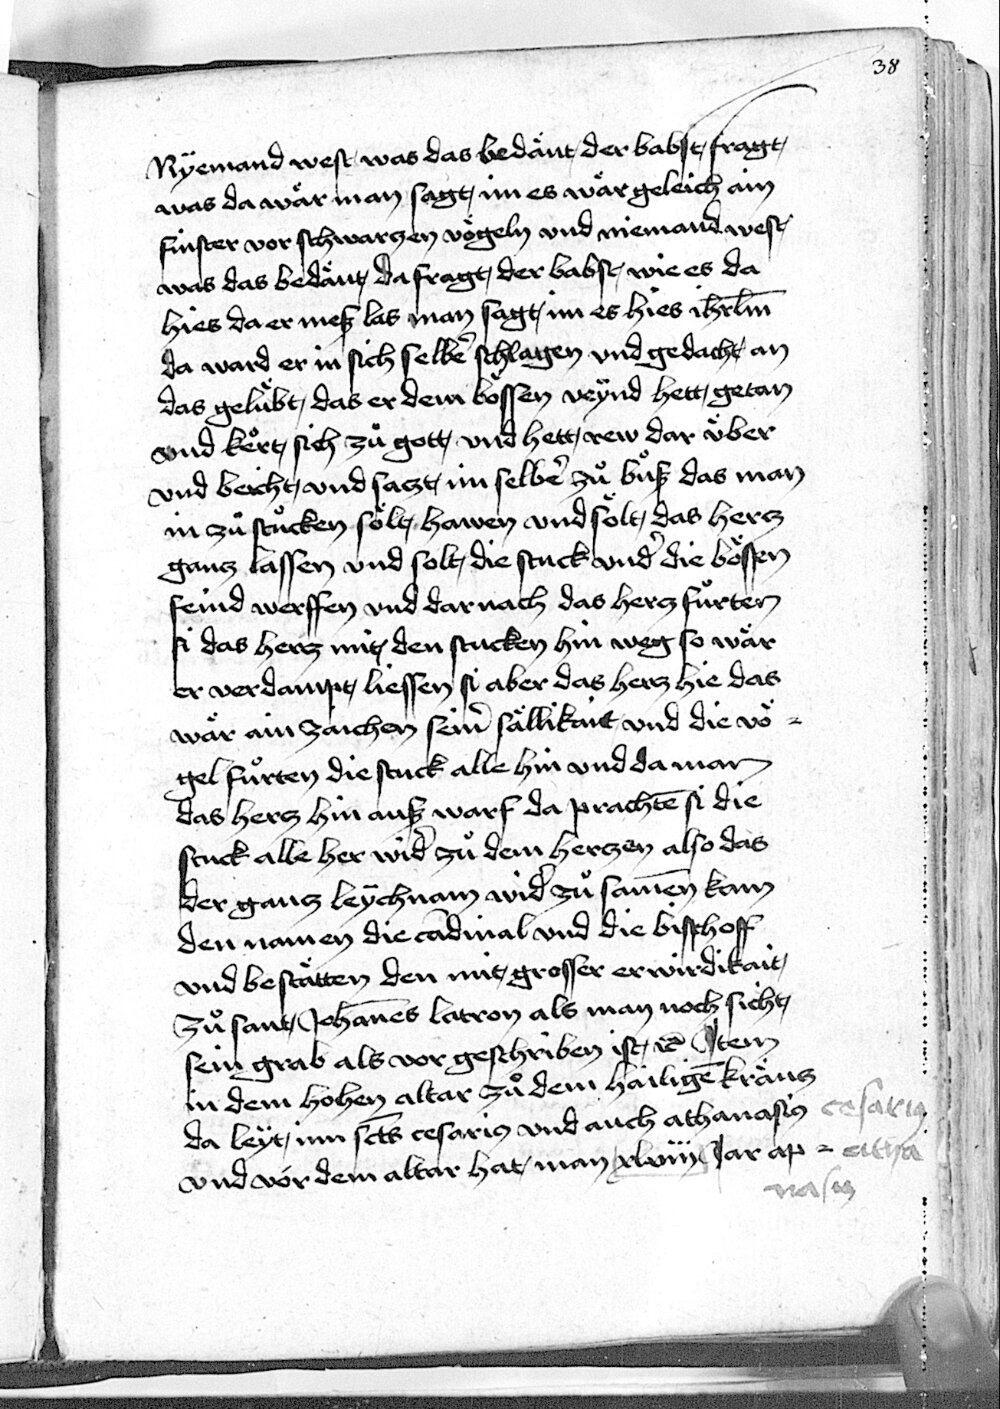 38
Nÿemand west was das bedäut der babst fragt
was da wär man sagt im es wär geleich ain
finster vor schwarczen vögeln und niemand west
was das bedäut da fragt der babst wie es da
hies da er mesz las man sagt im es hies ihrlm̄
da ward er in sich selbē schlagen vnd gedacht an
das gelübt das er dem bössen veÿnd hett getan
vnd kört sich zů gott vnd hett rew dar über
vnd beicht vnd saczt im selbē zů bůsz das man
in zů stucken sölt hawen vnd sölt das hercz
gancz lassen vnd solt die stuck vnd̄ die bössen
feind werffen vnd darnach das hercz fůrten
si das hercz mit den stucken hin weg so wär
er verdampt liessen si aber das hercz hie das
wär ain zaichen sein̄ sällikait vnd die vö=
gel fůrten die stuck alle hin vnd da man
das hercz hin ausz warf da prachtē si die
stuck alle her wid̄ zů dem herczen also das
der gancz leÿchnam wid̄ zů samen kam
den namen die cādinal vnd die bischoff
vnd bestätten den mit grosser erwirdikait
zů sant Johānes latron als man noch sicht
sein grab als vor geschriben ist rc̄ Item
in dem hohen altar zů dem hailigē kräucz
da leÿt inn sc̄ts cesariꝯ vnd auch athanasiꝯ cesariꝯ
vnd vor dem altar hat man xlviij Jar ap= atha
nasiꝯ